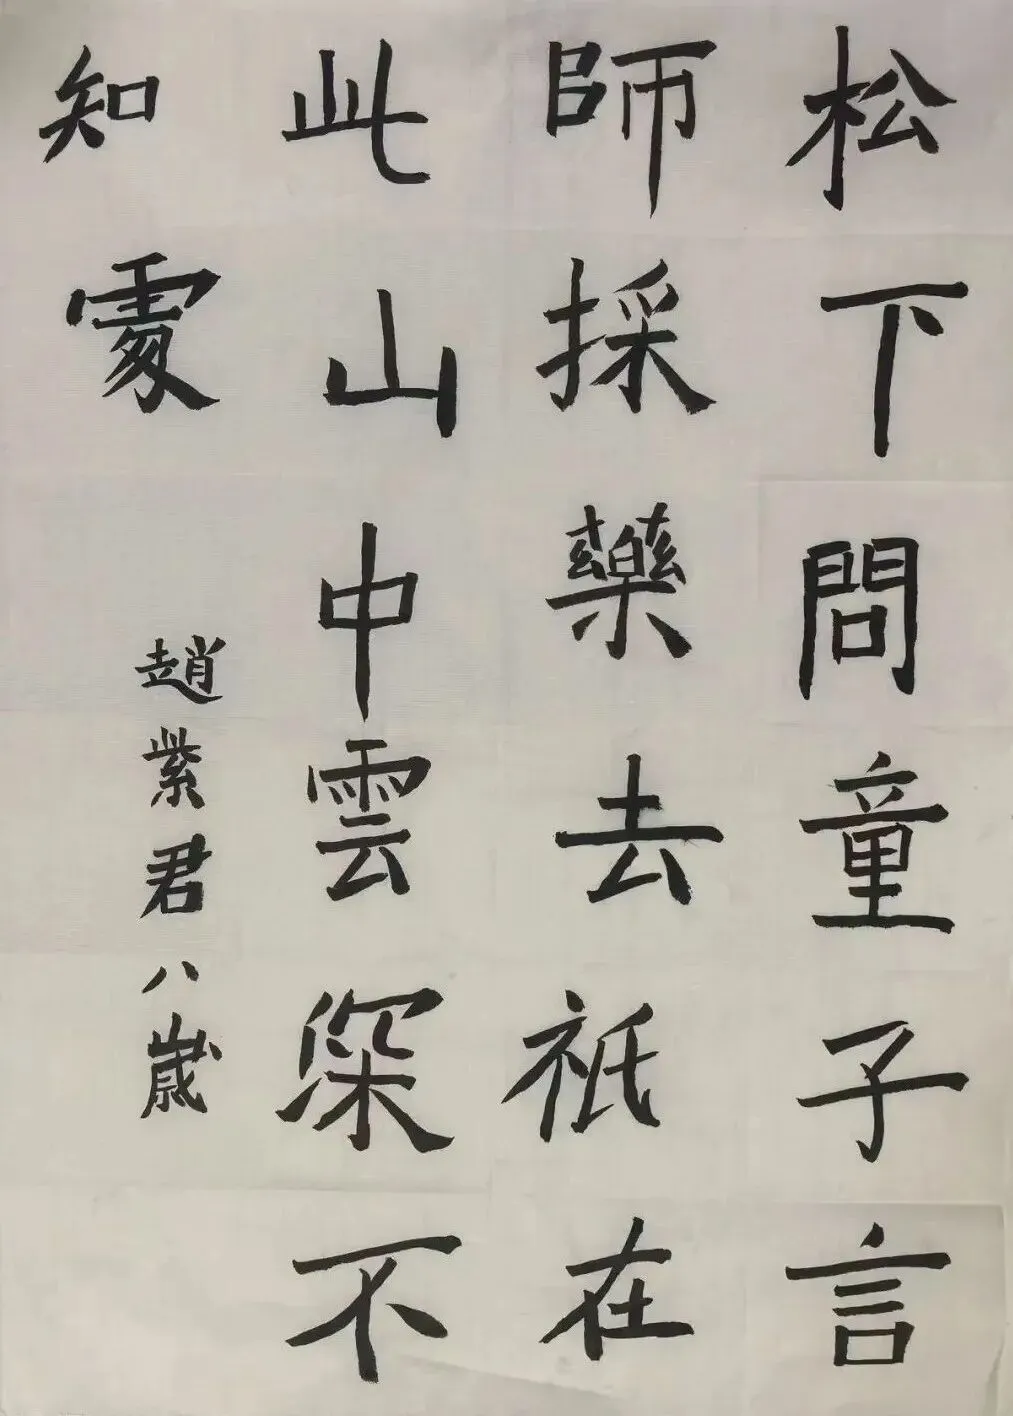 松下問童子言
師採藥去祇在
此山中雲深不
知處
趙紫君八歲